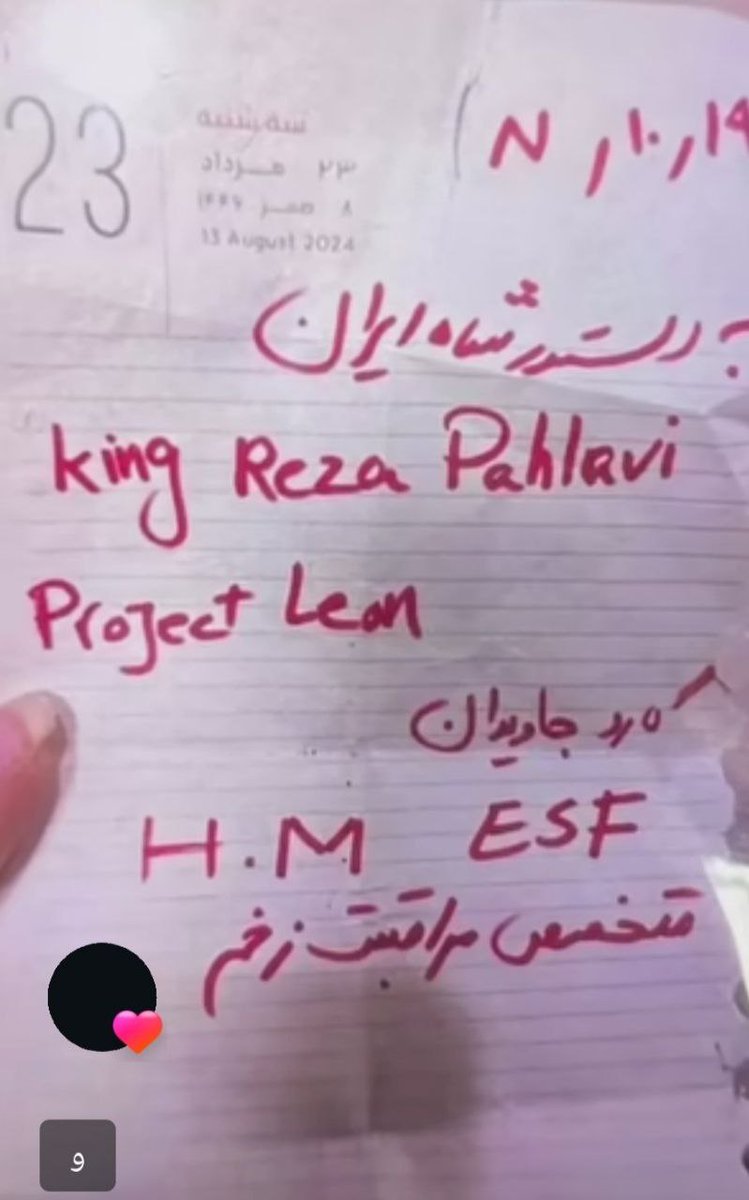 23
سه‌شنبه
۲۳ مرداد
۸ صفر ۱۴۴۶
13 August 2024
به دستور شاه ایران
king Reza Pahlavi
Project Leon
گارد جاویدان
H.M ESF
متخصص مراقبت زخم
و